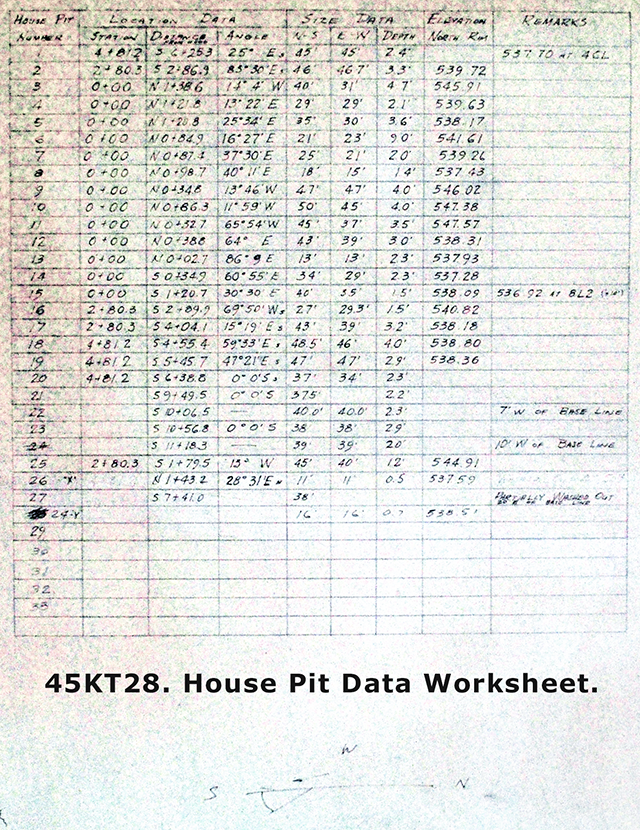 House Pit Location Data Size Data Elevation Remarks
Number Station Distance Angle N-S E-W Depth North Rim
4+81.2 S 6+25.3 25° E 45' 45' 2.4' 537.70 at 4CL
2 2+80.3 S 2+86.9 83°30' E 46' 46.7' 3.3' 539.72
3 0+00 N 1+38.6 4' W 40' 31' 4.7' 545.91
4 0+00 N 1+21.8 13°22' E 29' 29' 2.1' 539.63
5 0+00 N 1+20.8 25°34' E 35' 30' 3.6' 538.17
6 0+00 N 0+84.9 16°27' E 21' 23' 541.61
7 0+00 N 0+87.4 37°30' E 25' 21' 2.0' 539.26
8 0+00 N 0+98.7 40°11' E 18' 15' 1.4' 537.43
9 0+00 N 0+34.8 13°46' W 47' 47' 4.0' 546.02
10 0+00 N 0+86.3 11°59' W 50' 45' 4.0' 547.38
11 0+00 N 0+32.7 65°54' W 45' 37' 3.5' 547.57
12 0+00 N 0+38.8 64° E 43' 39' 3.0' 538.31
13 0+00 N 0+02.7 86° 9 E 13' 13' 2.3' 537.93
14 0+00 S 0+34.9 60°55' E 34' 29' 2.3' 537.28
15 0+00 S 1+20.7 30°30' E 40' 35' 1.5' 538.09 536.92 at BL2
16 2+80.3 S 2+89.9 69°50' W 27' 29.3' 1.5' 540.82
17 2+80.3 S 4+04.1 15°19' E 43' 39' 3.2' 538.18
18 4+81.2 S 4+55.4 59°33' E 48.5' 46' 4.0' 538.80
19 4+81.2 S 5+45.7 47°21' E 47' 47' 2.9' 538.36
20 4+81.2 S 6+38.8 0° 0' S 37' 34' 2.3'
21 S 9+49.5 0° 0' S 37.5' 2.2'
22 S 10+06.5 — 40.0' 40.0' 2.3' 7' W of Base Line
23 S 10+56.8 0° 0' S 38' 38' 2.9'
24 S 11+18.3 — 39' 39' 2.0' 10' W of Base Line
25 2+80.3 S 1+79.5 13° W 45' 40' 1.2' 544.91
26 "X" N 1+43.2 28°31' E 11' 11' 0.5 537.59
27 S 7+41.0 38' Partially Washed Out
24-Y 16' 16' 0.7 538.51
29
30
31
32
33
45KT28. House Pit Data Worksheet.
W
S N